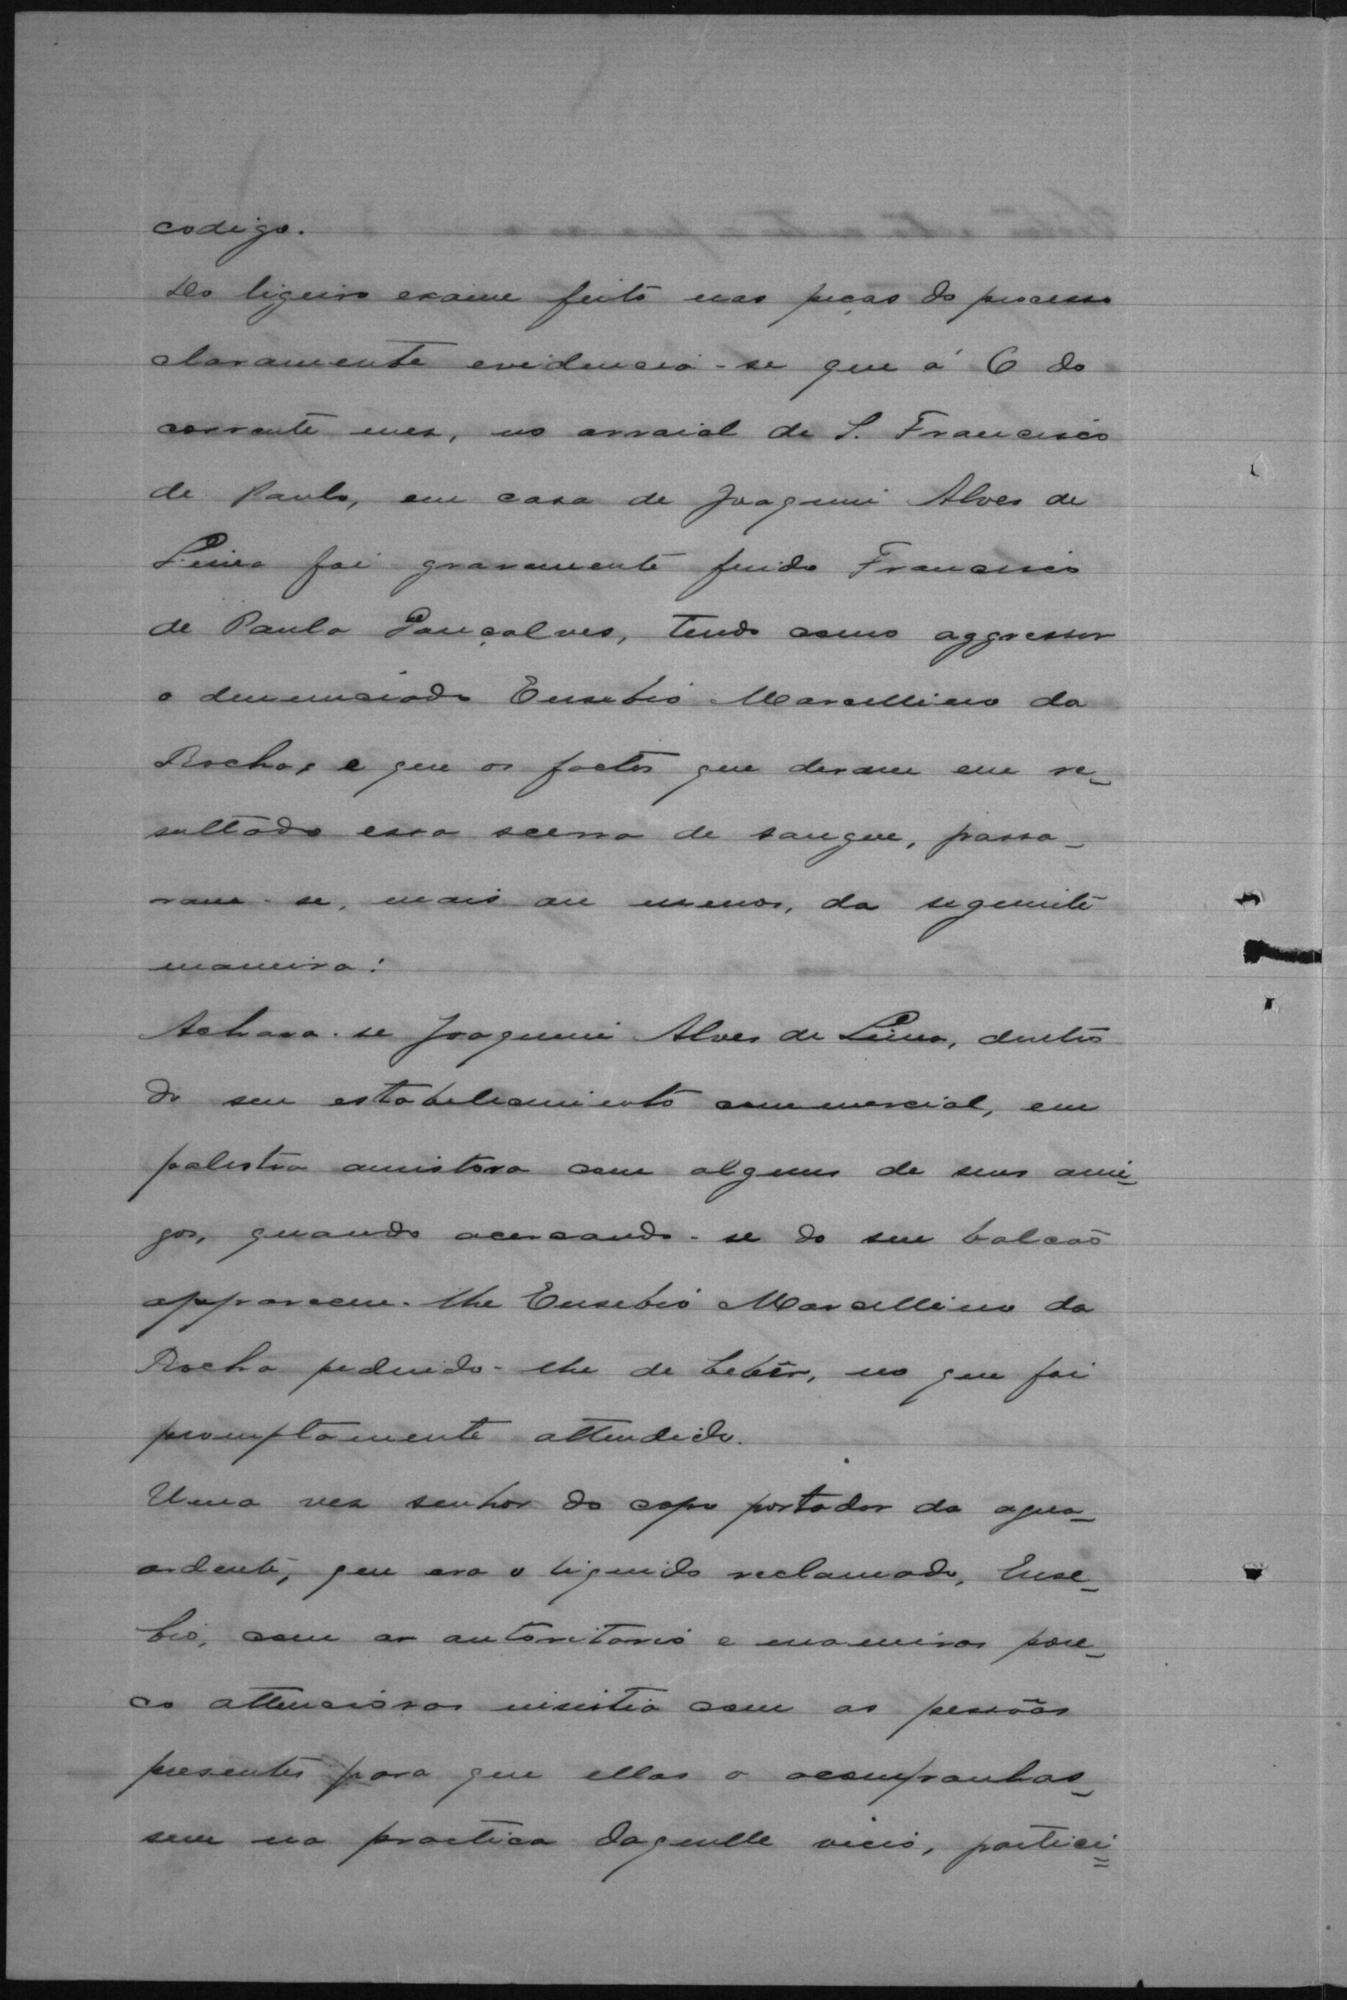 codigo.
Do ligeiro exame feito nas peças do processo
claramente evidencia-se que á 6 do
corrente mez, no arraial de S. Francisco
de Paula, em casa de Joaquim Alves de
Lima foi gravamente ferido Francisco
de Paula Gonçalves, tendo como aggressor
o denunciado Eusebio Marcellino da
Rocha, e que os factos que deram em re-
sultado essa scena de sangue, passa-
ram-se, mais ou menos, da seguinte
maneira:
Achava-se Joaquim Alves de Lima, dentro
do seu estabelecimento commercial, em
palestra amistosa com alguns de seus ami-
gos, quando acercando-se do seu balcão
appareceu-lhe Eusebio Marcellino da
Rocha pedindo-lhe de beber, no que foi
promptamente attendido.
Uma vez senhor do copo portador da agua-
ardente, que era o liquido reclamado, Euse-
bio, com ar autoritario e maneiras pou-
co attenciosas insistia com as pessôas
presentes para que ellas o acompanhas-
sem na practica daquelle vicio, partici=